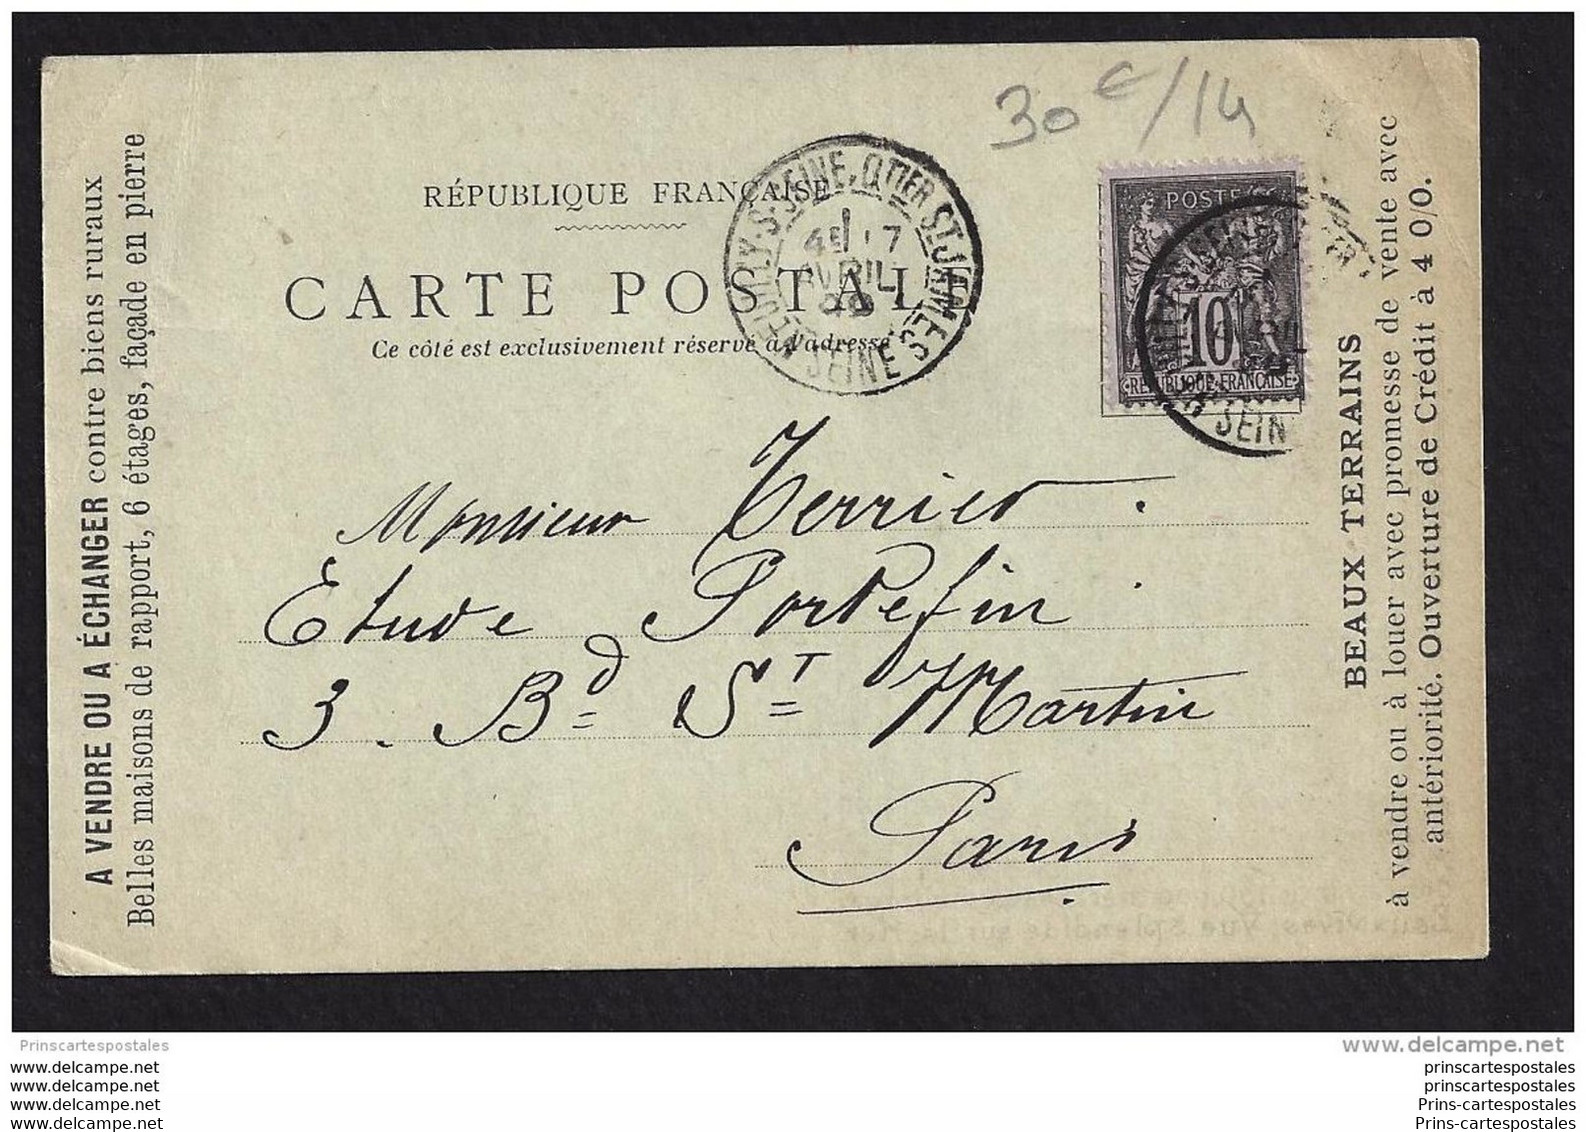 30€/14
RÉPUBLIQUE FRANÇAISE
CARTE POSTALE
Ce côté est exclusivement réservé à l'adresse.
NEUILLY-S-SEINE. QTIER ST JAMES
SEINE
17
AVRIL
POSTES
10
REPUBLIQUE FRANÇAISE
SEIN
Monsieur Terrier.
Etude Portefin
3. Bd St Martin
Paris
A VENDRE OU A ÉCHANGER contre biens ruraux
Belles maisons de rapport, 6 étages, façade en pierre
BEAUX TERRAINS
à vendre ou à louer avec promesse de vente avec
antériorité. Ouverture de Crédit à 4 0/0.
Prinscartespostales
www.delcampe.net
www.delcampe.net
www.delcampe.net
www.delcampe.net
www.delcampe.net
prinscartespostales
prinscartespostales
Prins-cartespostales
Prins-cartespostales